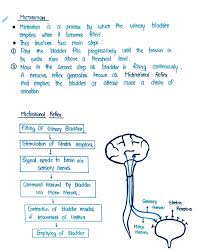 MICTURITION
• Micturition is a process by which the urinary bladder
empties when it becomes filled.
• This involves two main steps:
① First the bladder fills progressively until the tension in
its walls rises above a threshold level.
② Now in the second step as bladder is filling continuously,
A nervous reflex generates known as Micturition Reflex
that empties the bladder or atleast cause a desire of
urination
Micturition Reflex
Filling of Urinary Bladder
Stimulation of Stretch receptors
Signal sends to brain via
sensory nerves
Command received by Bladder
via Motor Nerves
Contraction of bladder muscles
of Urethra
Emptying of Bladder
Sensory
Nerve
Stretch
Receptors
Motor
Nerve